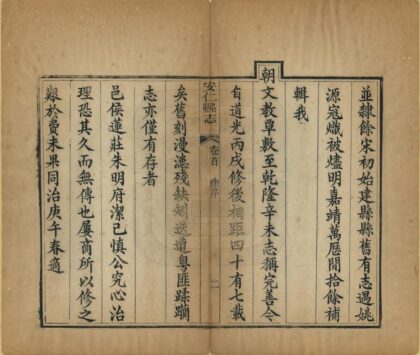 並隸餘宋初始建縣縣舊有志遇姚
源寇熾被燼明嘉靖萬歷間拾餘補
輯我
朝文教覃敷至乾隆辛未志稱完善今
自道光丙戌修後相距四十有七載
安仁縣志 卷首 序 二
矣舊刻漫漶殘缺矧迭遭粵匪蹂躪
志亦僅有存者
邑侯蓮莊朱明府潔己慎公究心治
理恐其久而無傳也屢商所以修之
艱於費未果同治庚午春適